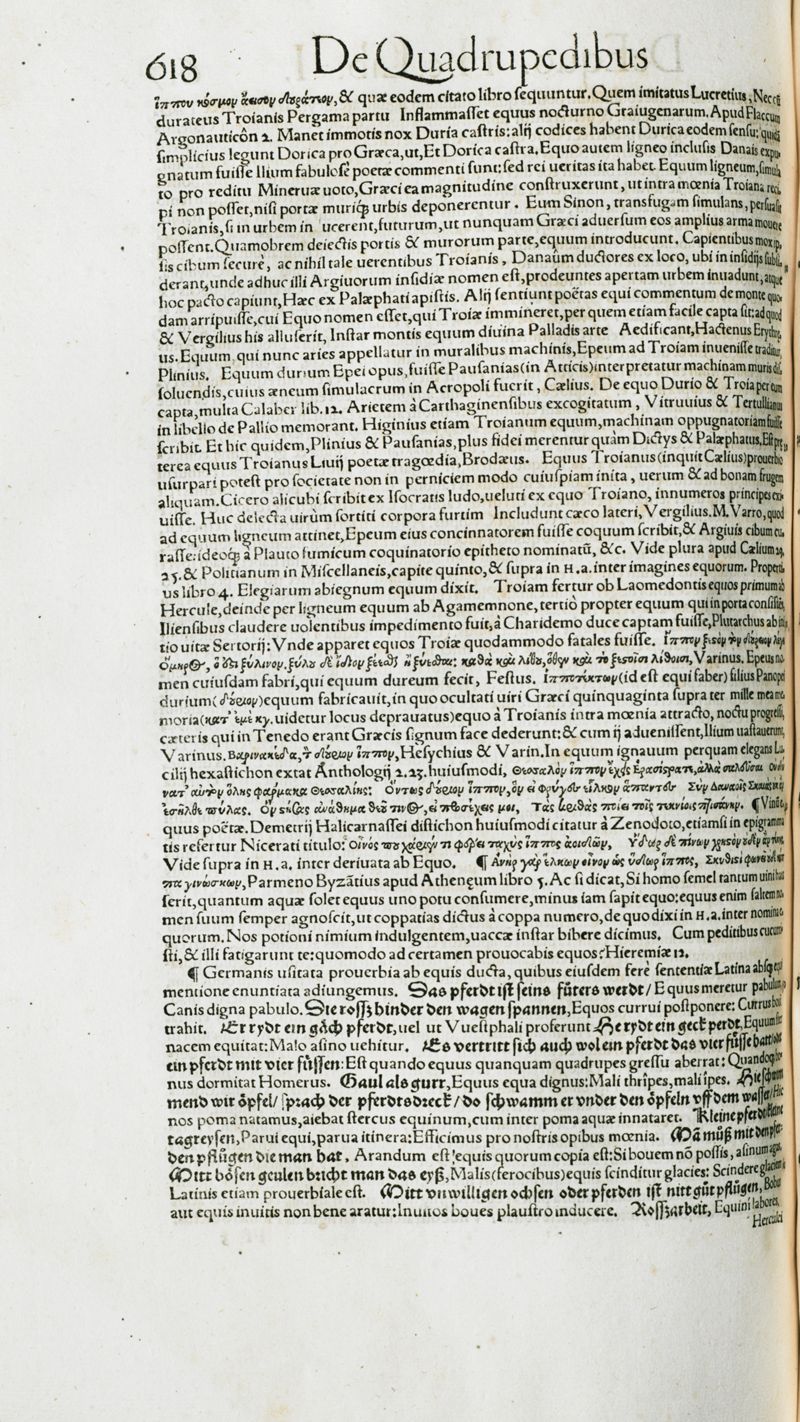 618 De Quadrupedibus
ἵππου κόσμον ἄεισον δουράτεον, & quæ eodem citato libro sequuntur. Quem imitatus Lucretius, Nec
durateus Troianis Pergama partu Inflammasset equus nocturno Graiugenarum. Apud Flaccum
Argonauticôn 2. Manet immotis nox Duria castris: alij codices habent Durica eodem sensu: quidã
simplicius legunt Dorica pro Græca, ut, Et Dorica castra. Equo autem ligneo inclusis Danais expu
gnatum fuisse Ilium fabulose poetæ commenti sunt: sed rei ueritas ita habet. Equum ligneum, simula
to pro reditu Mineruæ uoto, Græci ea magnitudine construxerunt, ut intra mœnia Troiana reci
pi non posset, nisi portæ muriq́ urbis deponerentur. Eum Sinon, transfugam simulans, persuasit
Troianis, si in urbem in ucerent, futurum, ut nunquam Græci aduersum eos amplius arma mouere
possent. Quamobrem deiectis portis & murorum parte, equum introducunt. Capientibus mox ip,
sis cibum securè, ac nihil tale uerentibus Troianis, Danaûm ductores ex loco, ubi in insidijs subsi,,
derant, unde adhuc illi Argiuorum insidiæ nomen est, prodeuntes apertam urbem inuadunt, atque
hoc pacto capiunt, Hæc ex Palæphati apistis. Alij sentiunt poëtas equi commentum de monte quo
dam arripuisse, cui Equo nomen esset, qui Troiæ immineret, per quem etiam facile capta sit: ad quod
& Vergilius his alluserit, Instar montis equum diuina Palladis arte Aedificant, Hactenus Erythræ,
us. Equum, qui nunc aries appellatur in muralibus machinis, Epeum ad Troiam inuenisse traditur,
Plinius. Equum durium Epei opus, fuisse Pausanias (in Atticis) interpretatur machinam muris dis,
soluendis, cuius æneum simulacrum in Acropoli fuerit, Cælius. De equo Durio & Troia per eum
capta, multa Calaber lib. 12. Arietem à Carthaginensibus excogitatum, Vitruuius & Tertullianus
in libello de Pallio memorant. Higinius etiam Troianum equum, machinam oppugnatoriam fuisse
scribit. Et hic quidem, Plinius & Pausanias, plus fidei merentur quàm Dictys & Palæphatus. Est præ,,
terea equus Troianus Liuij poetæ tragœdia, Brodæus. Equus Troianus (inquit Cælius) prouerbio
usurpari potest pro societate non in perniciem modo cuiuspiam inita, uerum & ad bonam frugem
aliquam. Cicero alicubi scribit ex Isocratis ludo, ueluti ex equo Troiano, innumeros principes exi,
uisse. Huc delecta uirùm sortiti corpora furtim Includunt cæco lateri, Vergilius. M. Varro, quod
ad equum ligneum attinet, Epeum eius concinnatorem fuisse coquum scribit, & Argiuis cibum cu,
rasse: ideoq́ à Plauto fumicum coquinatorio epitheto nominatũ, &c. Vide plura apud Cælium 29,
25. & Politianum in Miscellaneis, capite quinto, & supra in H. a. inter imagines equorum. Properti,
us libro 4. Elegiarum abiegnum equum dixit. Troiam fertur ob Laomedontis equos primum ab
Hercule, deinde per ligneum equum ab Agamemnone, tertiò propter equum qui in porta consistẽs,
Iliensibus claudere uolentibus impedimento fuit, à Charidemo duce captam fuisse, Plutarchus ab ini,
tio uitæ Sertorij: Vnde apparet equos Troiæ quodammodo fatales fuisse. ἵππον
Varinus. Epeus no,
men cuiusdam fabri, qui equum dureum fecit, Festus. (id est equi faber) filius Panopei
durium (δούρειον) equum fabricauit, in quo occultati uiri Græci quinquaginta supra ter mille mea me,
moria (κατ' ἐμὲ uidetur locus deprauatus) equo à Troianis intra mœnia attracto, noctu progressi,
cæteris qui in Tenedo erant Græcis signum face dederunt: & cum ij aduenissent, Ilium uastauerunt,
Varinus. ἵππον, Hesychius & Varin. In equum ignauum perquam elegans Lu,
cilij hexastichon extat Anthologij 2. 23. huiusmodi, Θεσσαλὸν ἵππον ἔχεις Ἐρασίστρατε, ἀλλὰ σαλεῦσαι Οὐ δύ
νατ' αὐτὸν ὅλης φάρμακα Θεσσαλίης: Ὄντως δούριον ἵππον, ὃν εἰ Φρύγες εἷλκον ἅπαντες Σὺν Δαναοῖς Σκαιὰς
ἐσῆλθε πύλας. Ὃν στήσας ἀνάθημα θεοῦ τινος, εἰ προσέχεις μοι, Τὰς κριθὰς ποίει τοῖς τεκνίοις πτισάνην. ¶ Vinũ e,
quus poëtæ. Demetrij Halicarnassei distichon huiusmodi citatur à Zenodoto, etiamsi in epigramma
tis refertur Nicerati titulo: Οἶνός τοι χαρίεντι πέλει ταχὺς ἵππος ἀοιδῷ, Ὕδωρ δὲ πίνων
Vide supra in H. a. inter deriuata ab Equo. ¶ Ἀνὴρ γὰρ ἕλκων οἶνον ὡς ὕδωρ ἵππος, Σκυθιστὶ φωνεῖ
γινώσκων, Parmeno Byzãtius apud Athenęum libro 5. Ac si dicat, Si homo semel tantum uini hau
serit, quantum aquæ solet equus uno potu consumere, minus iam sapit equo: equus enim saltem no,
men suum semper agnoscit, ut coppatias dictus à coppa numero, de quo dixi in H. a. inter nomina e,
quorum. Nos potioni nimium indulgentem, uaccæ instar bibere dicimus. Cum peditibus cucurri
sti, & illi fatigarunt te: quomodo ad certamen prouocabis equos? Hieremiæ 12.
¶ Germanis usitata prouerbia ab equis ducta, quibus eiusdem ferè sententiæ Latina absq́ equi
mentione enuntiata adiungemus. Das pferdt ist seins fůters werdt / Equus meretur pabulum:
Canis digna pabulo. Die rossz hinder den wagen spannen, Equos currui postponere: Currus bouẽ
trahit. Er rydt ein gåch pferdt, uel ut Vuestphali proferunt He rydt ein geck perdt, Equum
nacem equitat: Malo asino uehitur. Es vertritt sich auch wol ein pferdt das vier füsse hatt / oder
ein pferdt mit vier füssen: Est quando equus quanquam quadrupes gressu aberrat: Quandoq́ bo
nus dormitat Homerus. Gaul als gurr, Equus equa dignus: Mali thripes, mali ipes. Hie schwim
mend wir öpfel / sprach der pferdtsdreck / do schwamm er vnder den öpfeln vff dem wasser / Hic
nos poma natamus, aiebat stercus equinum, cum inter poma aquæ innataret. Kleine pferdt kleine
tagreysen, Parui equi, parua itinera: Efficimus pro nostris opibus mœnia. Mã můß mit den pfer,
den pflügen die man hat, Arandum est equis quorum copia est: Si bouem nõ possis, asinum agas.
Mitt bösen geulen bricht man das eyß, Malis (ferocibus) equis scinditur glacies: Scindere glaciem
Latinis etiam prouerbiale est. Mitt vnwilligen ochsen oder pferden ist nitt gůt pflügen, Bobus
aut equis inuitis non bene aratur: Inuitos boues plaustro inducere. Rossz arbeit, Equini labores,
Herculei